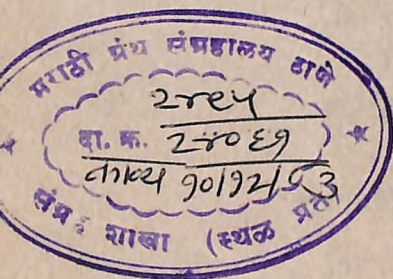 मराठी ग्रंथ संग्रहालय ठाणे
२४९५
दा. क्र. २४०६१
काव्य १०/१२/५३
संग्र: शाखा (स्थळ प्रत)